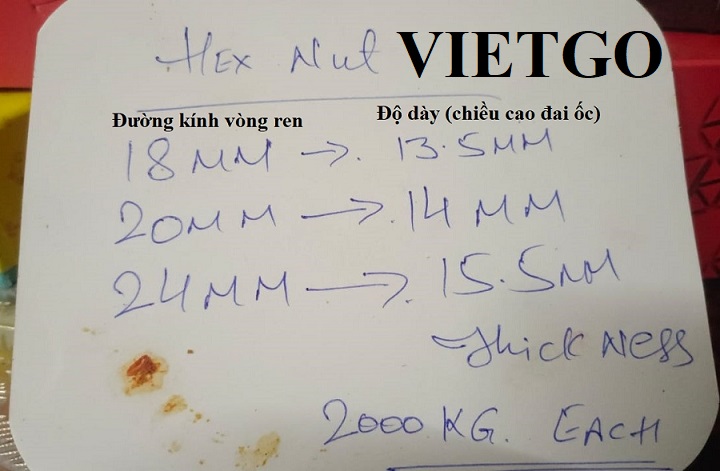 HEX Nut VIETGO
Đường kính vòng ren Độ dày (chiều cao đai ốc)
18MM → 13.5MM
20MM → 14MM
24MM → 15.5MM
thickNESS
2000KG. EACH